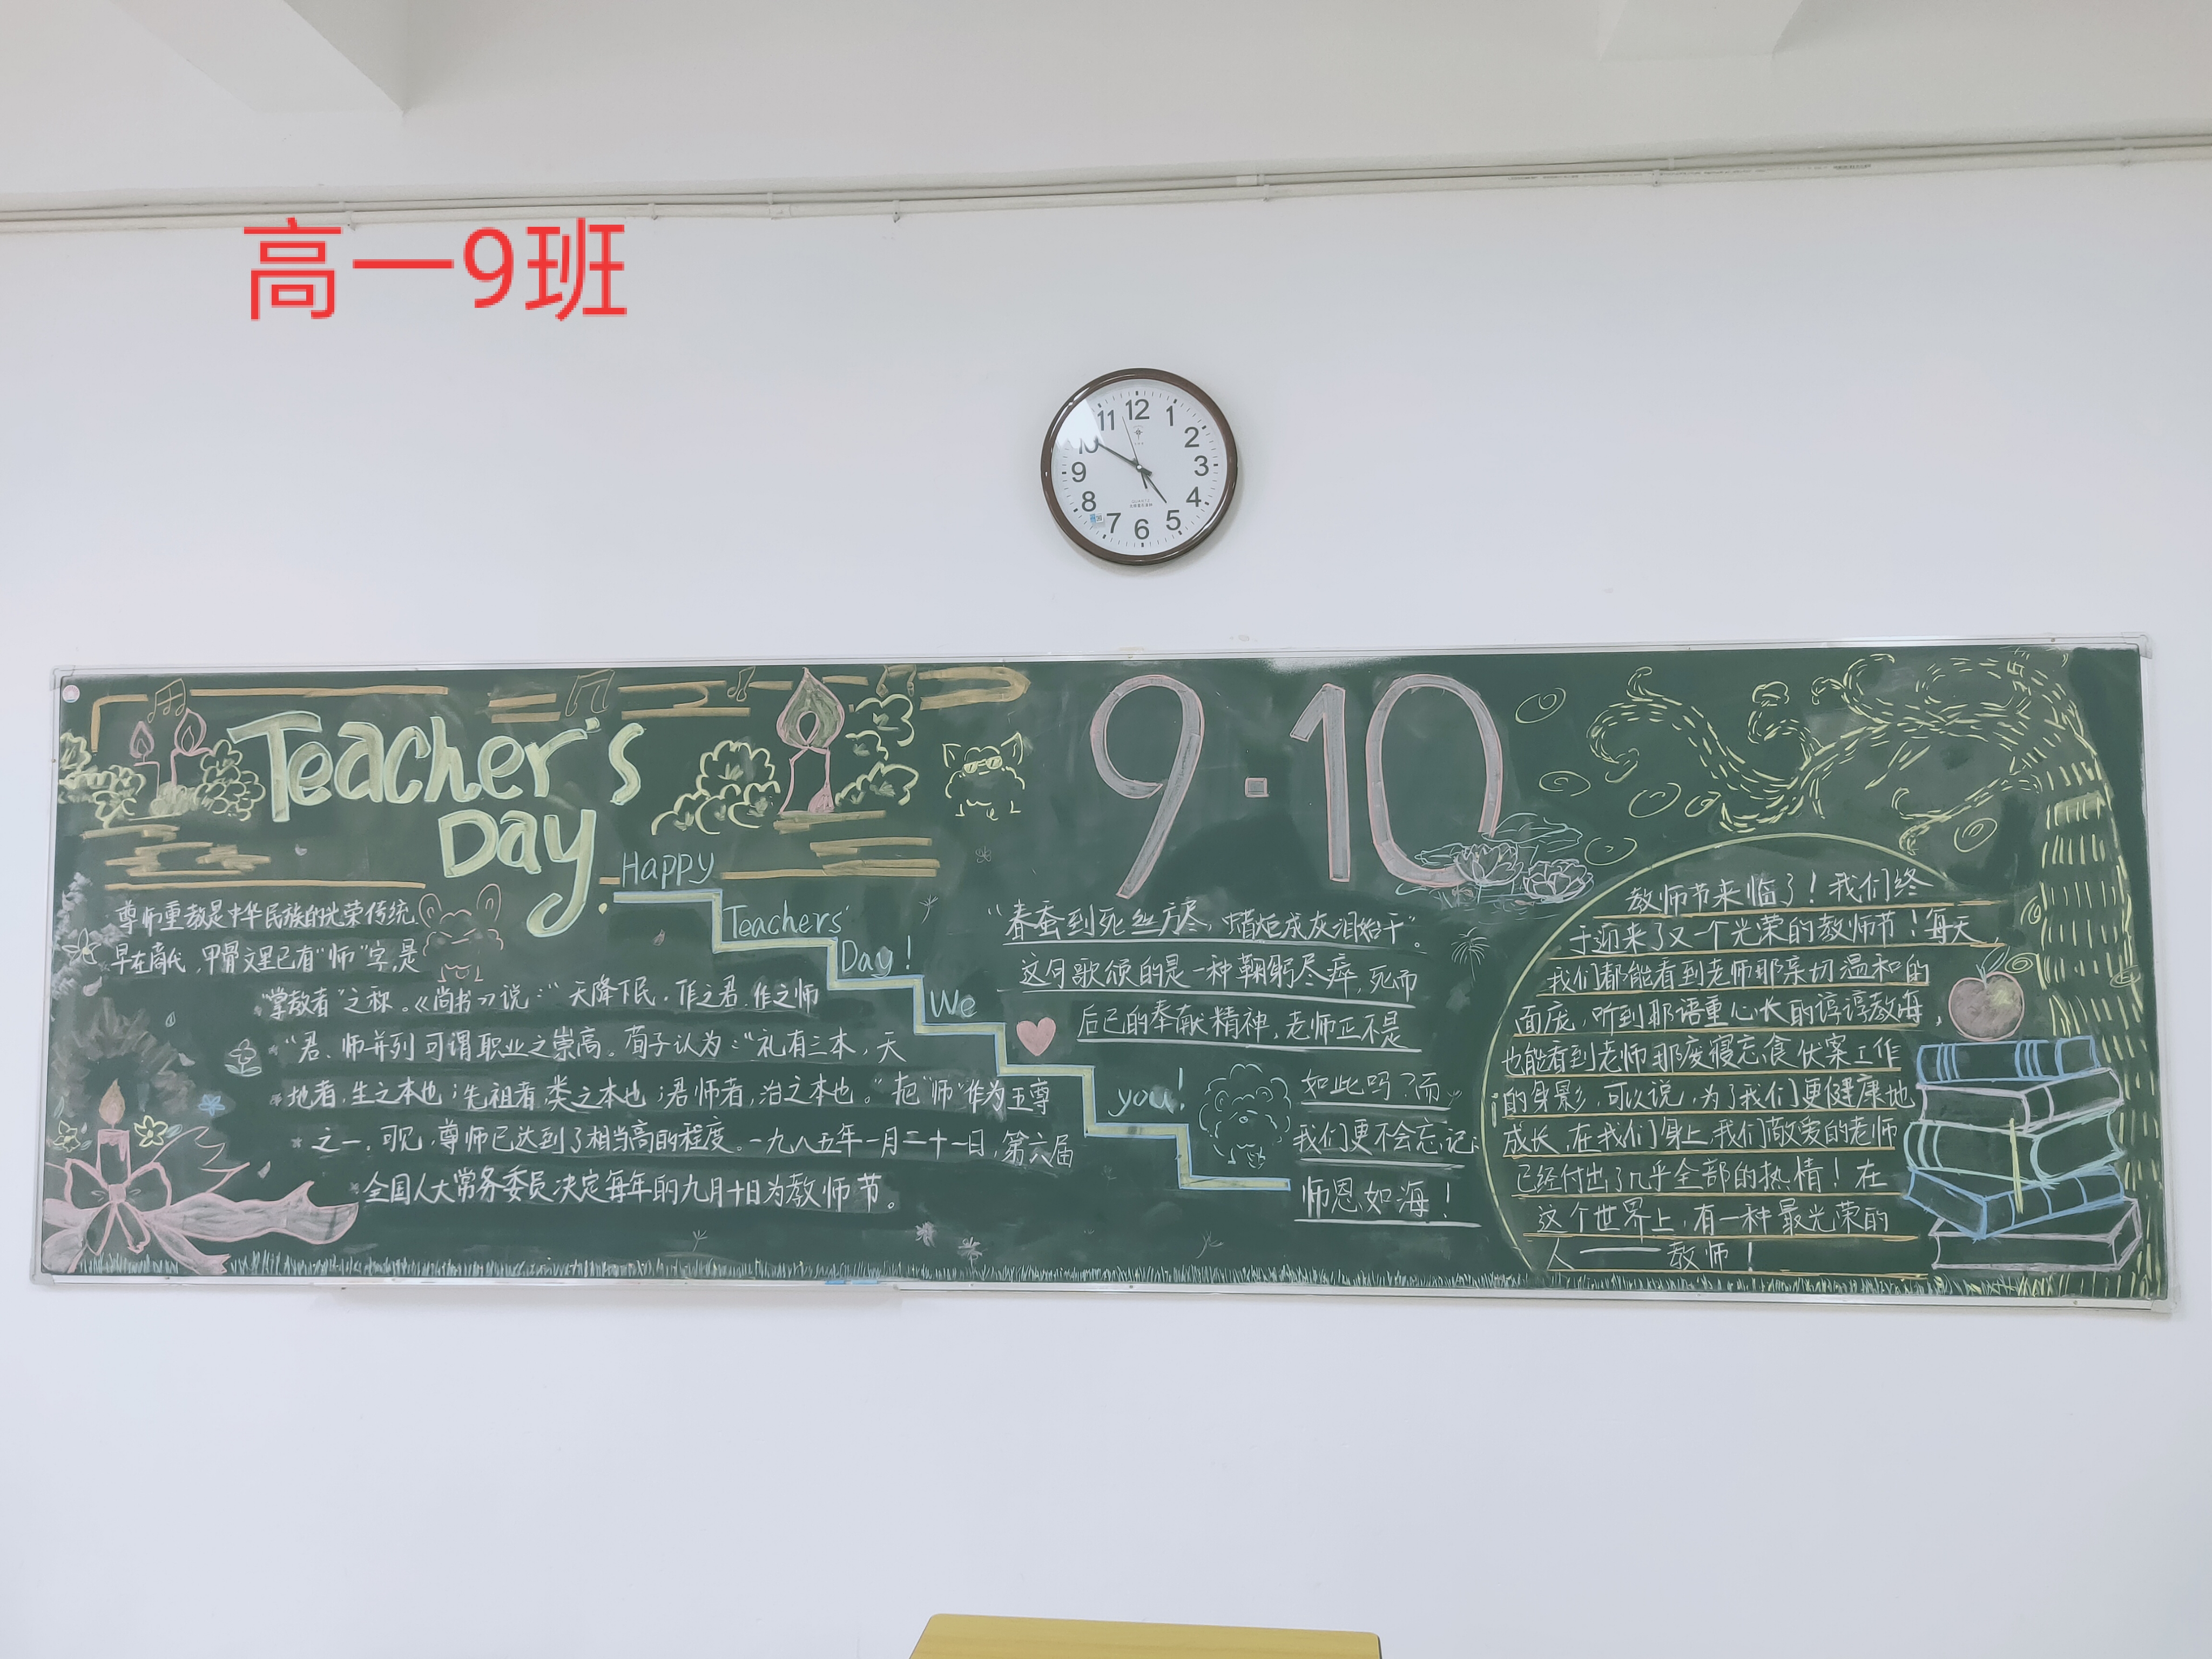 高一9班
11 12 1
10 2
9 3
8 4
7 6 5
Teacher's
Day
9·10
尊师重教是中华民族的光荣传统
早在商代,甲骨文里已有“师”字,是
“掌教者”之称。《尚书》说:“天降下民,作之君,作之师
“君、师并列可谓职业之崇高。荀子认为:“礼有三本,天
地者,生之本也;先祖者,类之本也;君师者,治之本也。”把“师”作为王尊
之一,可见,尊师已达到了相当高的程度。一九八五年一月二十一日,第六届
全国人大常务委员决定每年的九月十日为教师节。
Happy
Teachers'
Day!
We
you!
“春蚕到死丝方尽,蜡炬成灰泪始干”。
这句歌颂的是一种鞠躬尽瘁,死而
后已的奉献精神,老师正不是
如此吗?而
我们更不会忘记:
师恩如海!
教师节来临了!我们终
于迎来了又一个光荣的教师节!每天,
我们都能看到老师那亲切温和的
面庞,听到那语重心长的谆谆教诲,
也能看到老师那废寝忘食伏案工作
的身影,可以说,为了我们更健康地
成长,在我们身上,我们敬爱的老师
已经付出了几乎全部的热情!在
这个世界上,有一种最光荣的
人——教师!